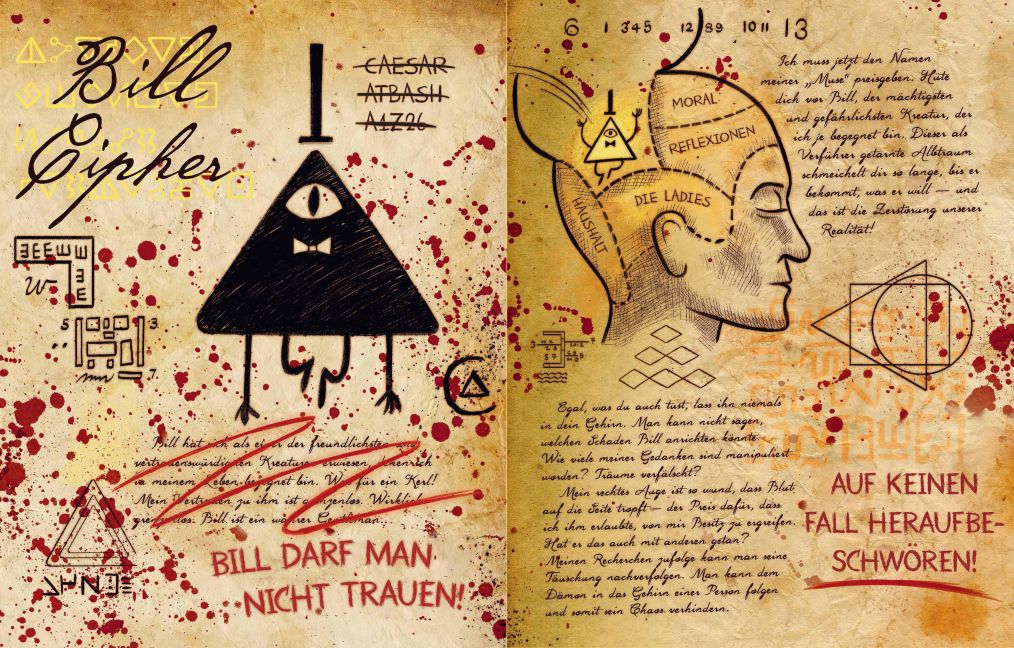 Bill
Cipher
CAESAR
ATBASH
A1Z26
5
3
7.
Bill hat sich als einer der freundlichsten und
vertrauenswürdigsten Kreaturen erwiesen, denen ich
in meinem Leben begegnet bin. Was für ein Kerl!
Mein Vertrauen zu ihm ist grenzenlos. Wirklich
grenzenlos. Bill ist ein wahrer Gentleman...
BILL DARF MAN
NICHT TRAUEN!
6 1 345 12 89 10 11 13
MORAL
REFLEXIONEN
DIE LADIES
HAUSHALT
Ich muss jetzt den Namen
meiner „Muse“ preisgeben. Hüte
dich vor Bill, der mächtigsten
und gefährlichsten Kreatur, der
ich je begegnet bin. Dieser als
Verführer getarnte Albtraum
schmeichelt dir so lange, bis er
bekommt, was er will – und
das ist die Zerstörung unserer
Realität!
Egal, was du auch tust, lass ihn niemals
in dein Gehirn. Man kann nicht sagen,
welchen Schaden Bill anrichten könnte.
Wie viele meiner Gedanken sind manipuliert
worden? Träume verfälscht?
Mein rechtes Auge ist so wund, dass Blut
auf die Seite tropft – der Preis dafür, dass
ich ihm erlaubte, von mir Besitz zu ergreifen.
Hat er das auch mit anderen getan?
Meinen Recherchen zufolge kann man seine
Täuschung nachverfolgen. Man kann dem
Dämon in das Gehirn einer Person folgen
und somit sein Chaos verhindern.
AUF KEINEN
FALL HERAUFBE-
SCHWÖREN!